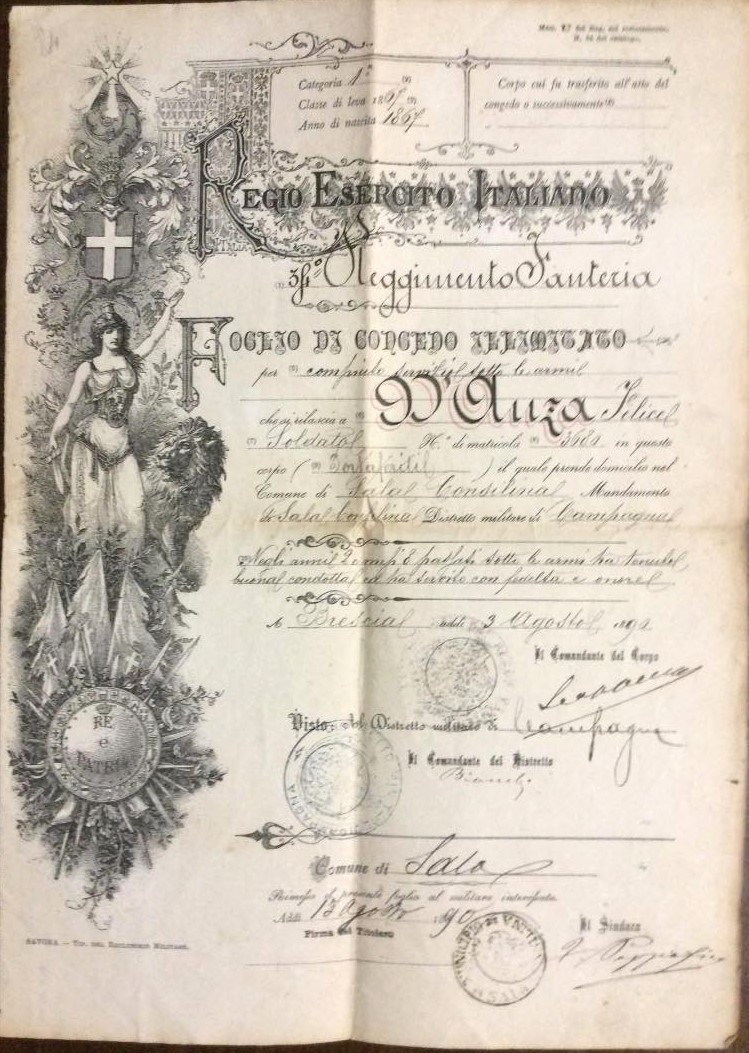 Categoria 1ª (2)
Classe di leva 1867 (3)
Anno di nascita 1867
Corpo cui fu trasferito all'atto del
congedo o successivamente
REGIO ESERCITO ITALIANO
ITALIA
Reggimento Fanteria
FOGLIO DI CONGEDO ILLIMITATO
per compiuto servizio sotto le armi
che si rilascia a D'Anza Felice
Soldato N.° di matricola in questo
corpo ( ) il quale prende domicilio nel
Comune di Sala Consilina Mandamento
di Sala Consilina Distretto militare di Campagna
Negli anni 2 mesi 8 passati sotto le armi ha tenuto
buona condotta ed ha servito con fedeltà e onore
A Brescia addì 3 Agosto 1890
Il Comandante del Corpo
Visto: Al Distretto militare di Campagna
Il Comandante del Distretto
RE
e
PATRIA
Comune di Sala
Rimesso il presente foglio al militare interessato.
Addì 13 Agosto 1890
Firma del Titolare
Il Sindaco
SAVONA — TIP. DEL MILITARE.